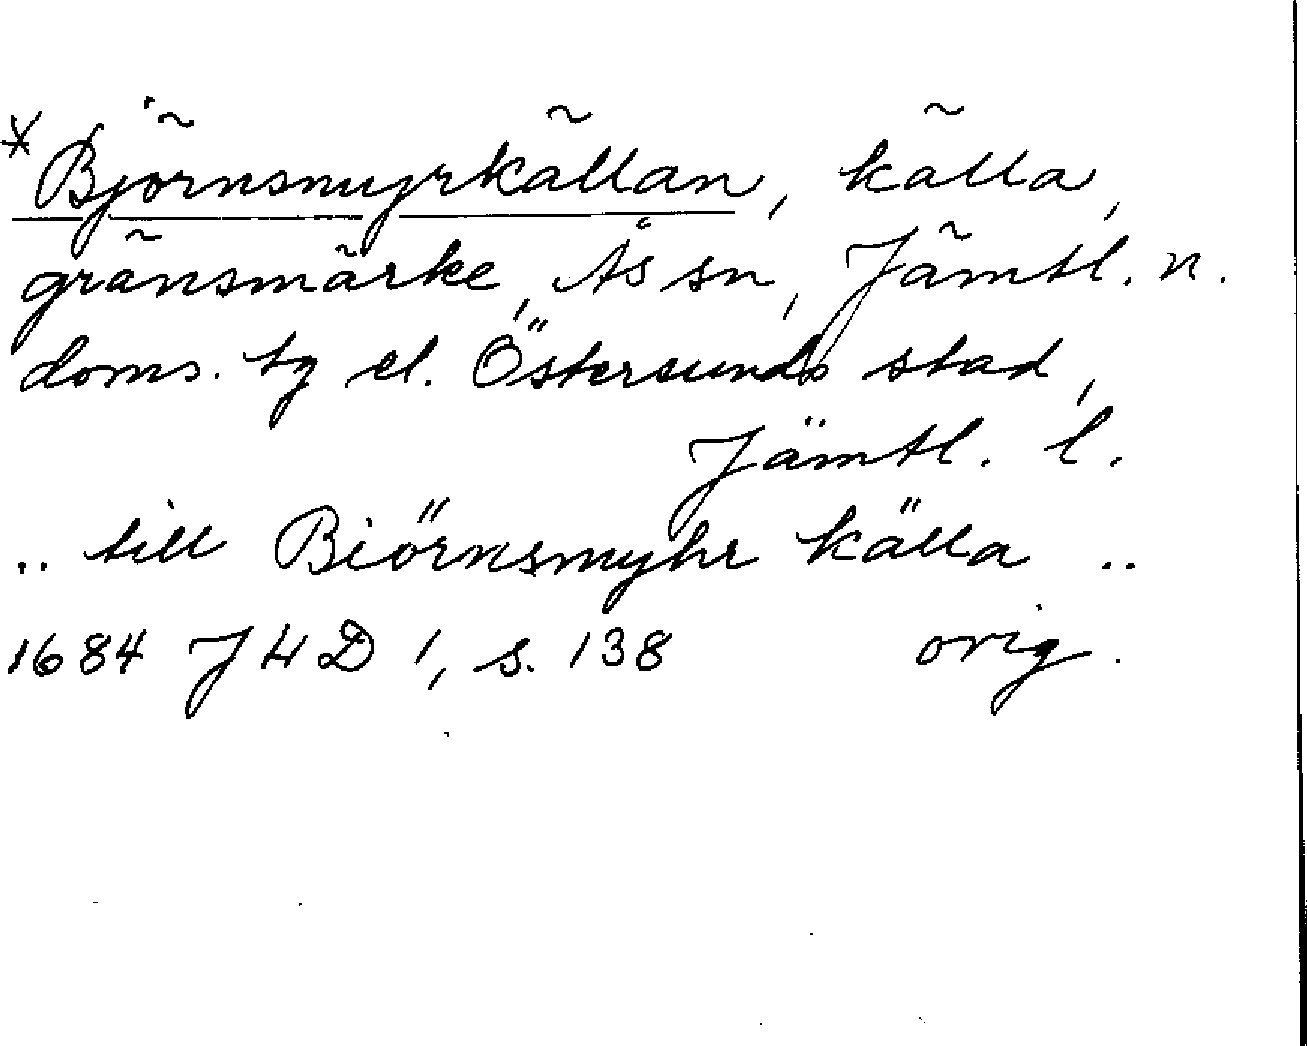 *Björnsmyrkällan, källa,
gränsmärke, Ås sn, Jämtl. n.
doms. tg el. Östersunds stad,
Jämtl. l.
.. till Biörnsmyhr källa ..
1684 J H D 1, s. 138 orig.